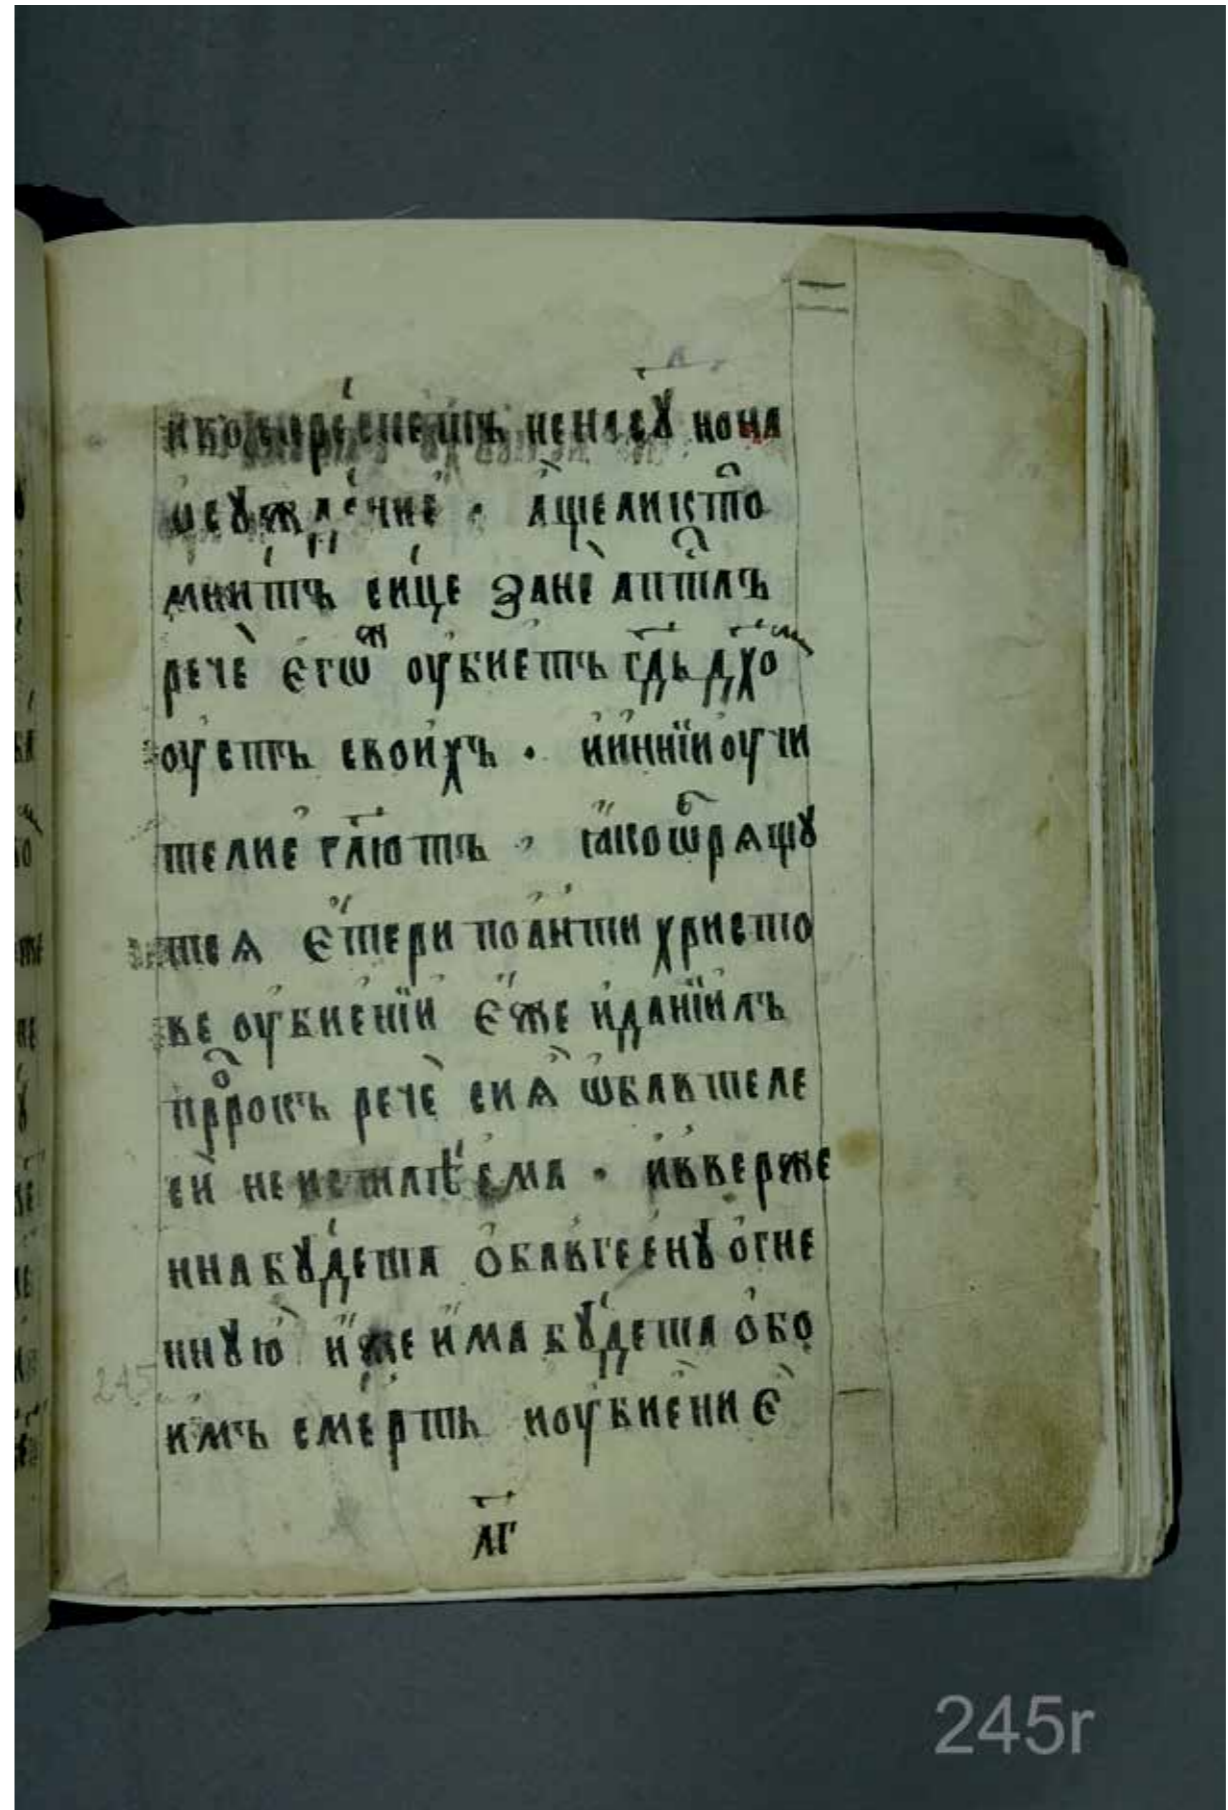 ненасꙋ нона
ѡсꙋжде́ние · а҆щеликтѡ
мни́тъ си́це ꙁанѐ апⷭ҇тлъ
речѐ є҆гѡ́ж оу҆бие́тъ гд҇ь дх҇о
оу҆стъ свои́хъ · и҆и҆ннїи оу҆чи
телие҆ гл҇ютъ , ꙗ҆коѡ҆брѧщꙋ
тсѧ є҆́тери поа҆нти христо
ве оу҆биенїи є҆́же и҆данїи́лъ
пррⷪ҇окъ речѐ сиѧ̀ ѡ҆бавтеле
си неистлѣ́ема · и҆вверже
ннабꙋ́дета о҆бавгее҆нꙋ о҆гне
ннꙋю и҆́же и҆́мабꙋ́дета о҆бо
и҆́мъ сме́рть иоу҆бие́ние
л҃г
245
245r